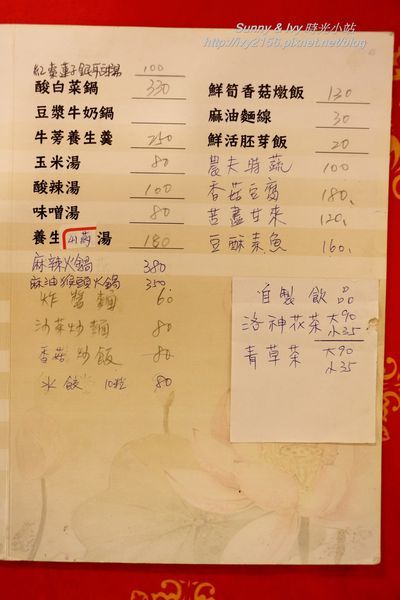 Sunny & Ivy 時光小站
http://ivy2156.pixnet.net/blog
紅棗蓮子銀耳甜湯 100
酸白菜鍋 330
豆漿牛奶鍋
牛蒡養生羹 250
玉米湯 80
酸辣湯 100
味噌湯 80
養生山藥湯 180
麻辣火鍋 380
麻油猴頭火鍋 350
炸醬麵 60
沙茶炒麵 80
香菇炒飯 80
水餃 10粒 80
鮮筍香菇燉飯 130
麻油麵線 30
鮮活胚芽飯 20
農夫時蔬 100
香菇豆腐 180.
苦盡甘來 120.
豆酥素魚 160.
自製飲品
洛神花茶 大90
小35
青草茶 大90
小35